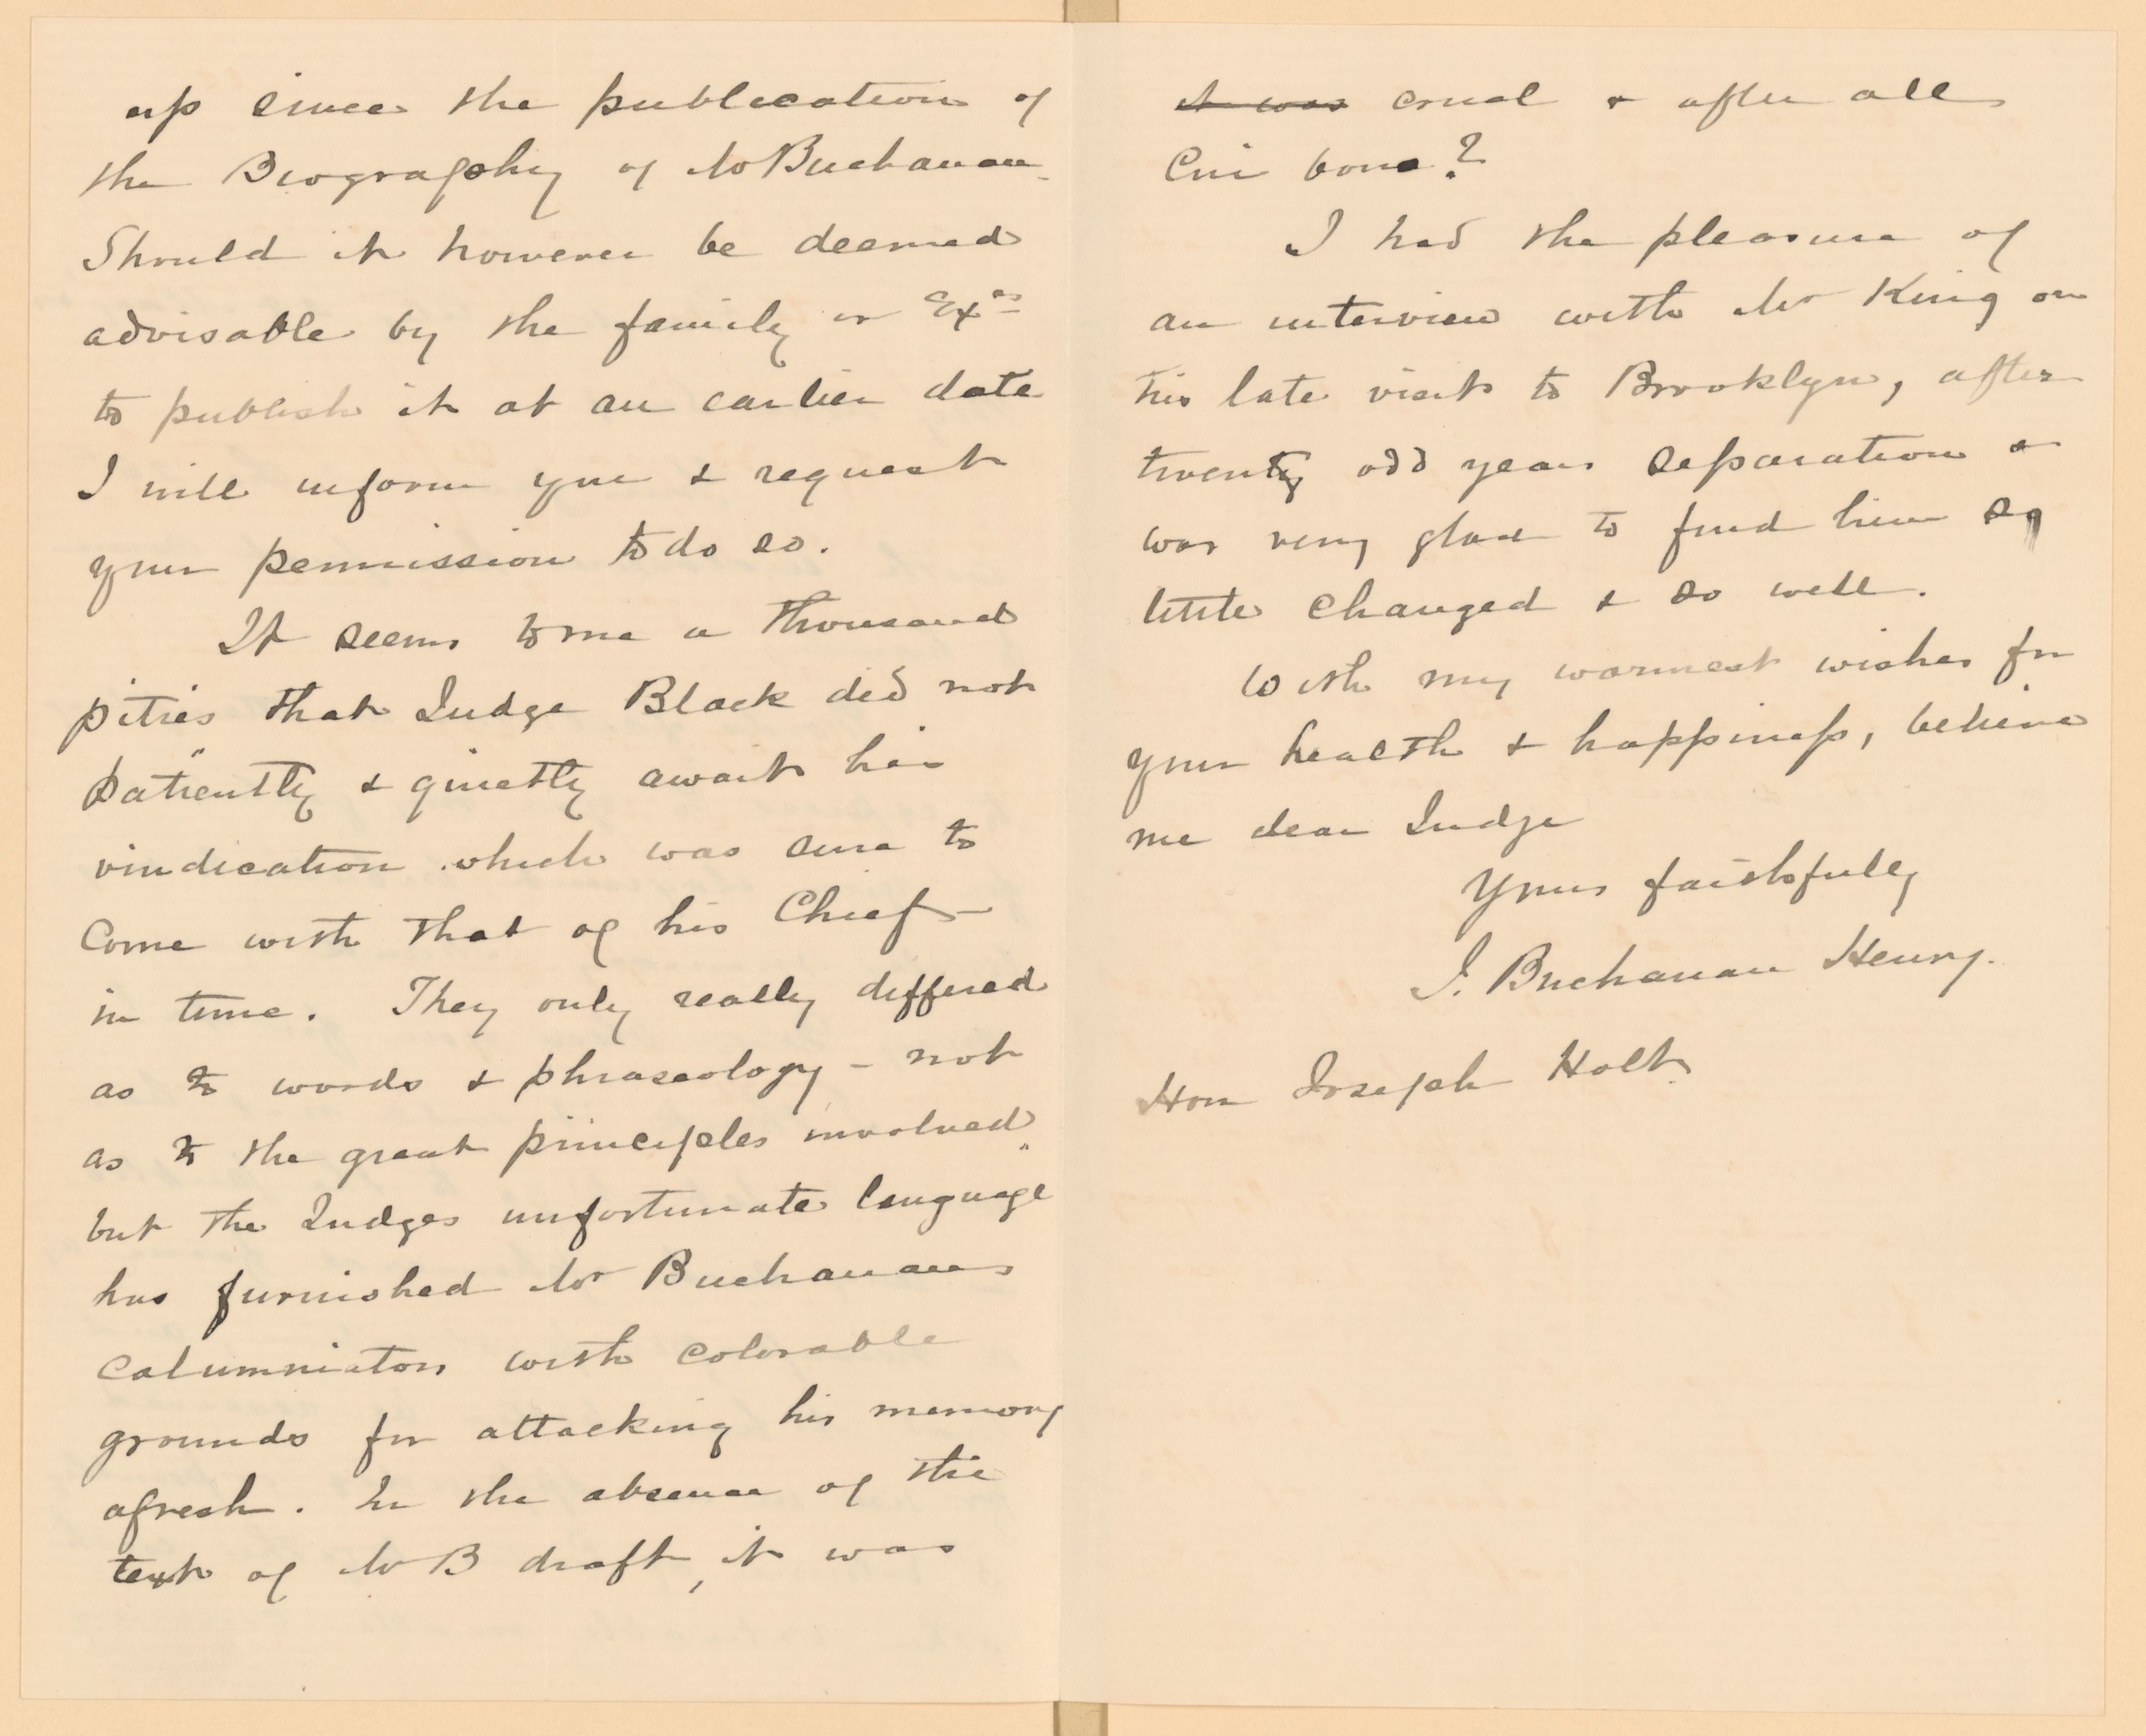 up since the publication of
the Biography of Mr Buchanan.
Should it however be deemed
advisable by the family or Exrs
to publish it at an earlier date
I will inform you & request
your permission to do so.
It seems to me a thousand
pities that Judge Black did not
patiently & quietly await his
vindication which was sure to
come with that of his Chief –
in time. They only really differed
as to words & phraseology – not
as to the great principles involved
but the Judges unfortunate language
has furnished Mr Buchanans
calumniators with colorable
grounds for attacking his memory
afresh. In the absence of the
text of Mr B draft, it was
it was cruel & after all
Cui bono?
I had the pleasure of
an interview with Mr King on
his late visit to Brooklyn, after
twenty odd years separation &
was very glad to find him so
little changed & so well.
With my warmest wishes for
your health & happiness, believe
me dear Judge
Yours faithfully
J. Buchanan Henry.
Hon Joseph Holt